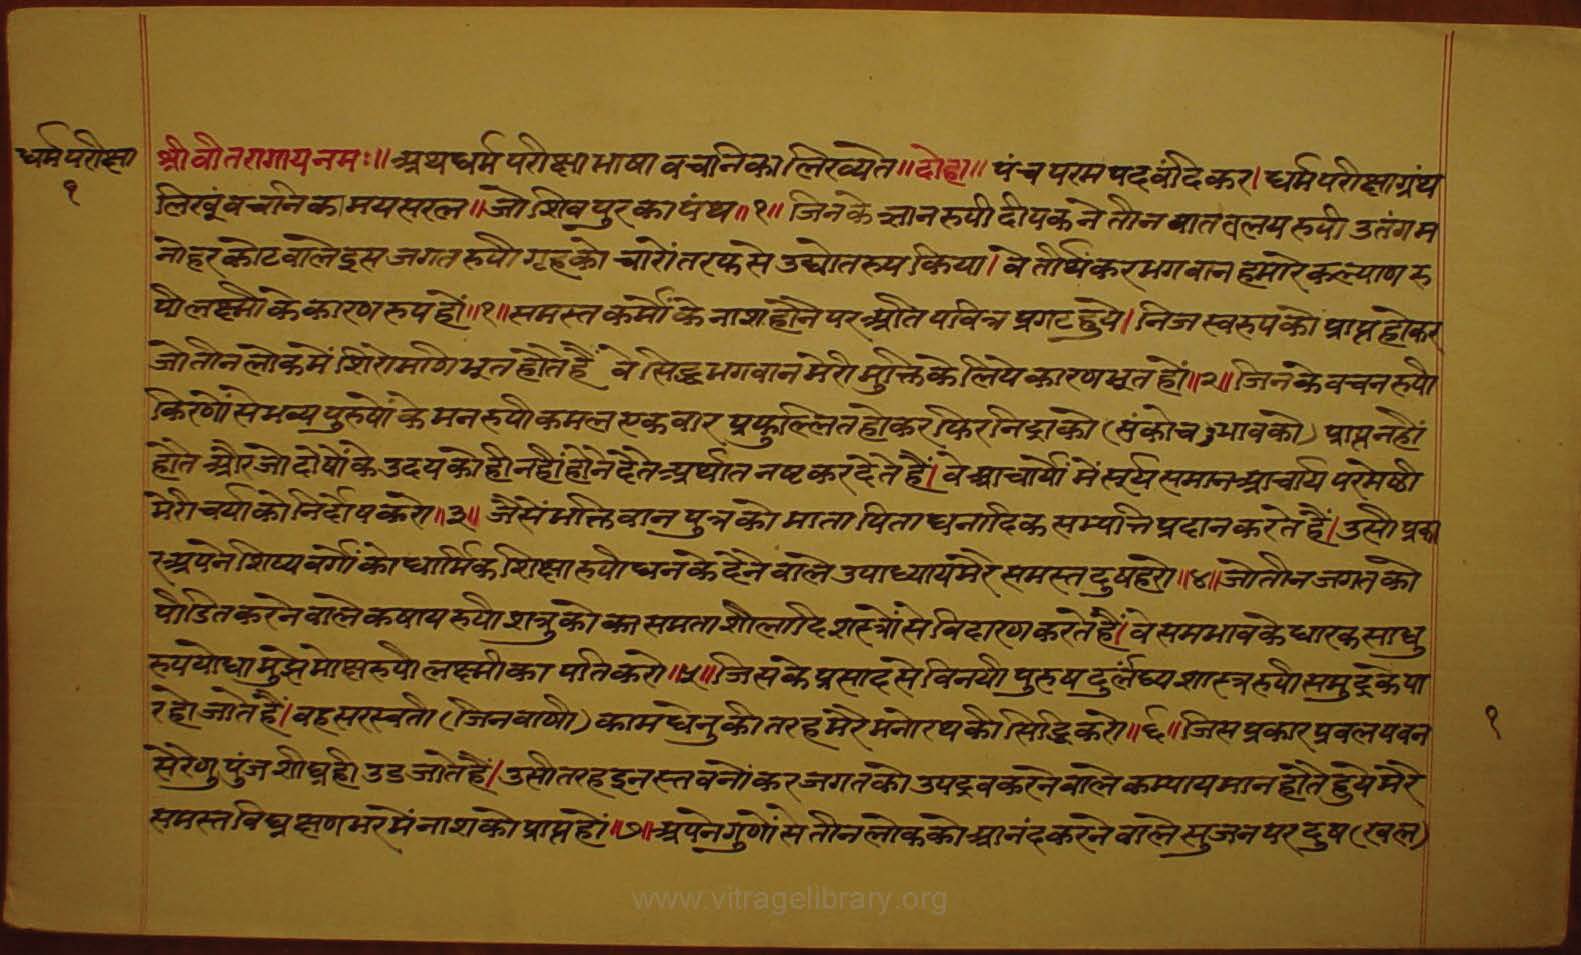 धर्मपरीक्षा
१
श्रीवीतरागायनमः॥ अथधर्मपरीक्षाभाषावचनिकालिख्येत॥दोहा॥ पंचपरमपदवंदिकर। धर्मपरीक्षाग्रंथ
लिखूंवचनिकामयसरल॥जोशिवपुरकापंथ॥१॥ जिनकेज्ञानरुपीदीपकनेतीनवातवलयरुपी उतंगम
नोहरकोटवालेइसजगतरुपीगृहको चारोंतरफसेउद्योतरुपकिया। वेतीर्थंकरभगवानहमारेकल्याणरु
पीलक्ष्मीकेकारणरुपहों॥१॥समस्तकर्मोंकेनाशहोनेपरअतिपवित्रप्रगटहुये। निजस्वरुपकोप्राप्तहोकर
जोतीनलोकमेंशिरोमणिभूतहोतेहैं वेसिद्धभगवानमेरीमुक्तिकेलियेकारणभूतहों॥२॥जिनकेवचनरुपी
किरणोंसेभव्यपुरुषोंकेमनरुपीकमलएकवारप्रफुल्लितहोकरफिरनिद्राको(संकोचभावको)प्राप्तनहीं
होतेऔरजोदोषोंकेउदयकोहीनहींहोनेदेतेअर्थातनष्टकरदेतेहैं। वेआचार्योंमेंसूर्यसमानआचार्यपरमेष्ठी
मेरीचर्याकोनिर्दोषकरो॥३॥ जैसेंभक्तिवानपुत्रकोमातापिताधनादिकसम्पत्तिप्रदानकरतेहैं।उसीप्रका
रअपनेशिष्यवर्गोंकोधार्मिकशिक्षारुपीधनकेदेनेवालेउपाध्यायमेरेसमस्तदुषहरो॥४॥जोतीनजगतको
पीडितकरनेवालेकषायरुपीशत्रुकोकासमताशीलादिशस्त्रोंसेविदारणकरतेहैं।वेसमभावकेधारकसाधु
रुपयोधामुझेमोक्षरुपीलक्ष्मीकापतिकरो॥५॥जिसकेप्रसादसेविनयीपुरुषदुर्लंघ्यशास्त्ररुपीसमुद्रकेपा
रहोजातेहैं।वहसरस्वती(जिनवाणी)कामधेनुकीतरहमेरेमनोरथकीसिद्धिकरो॥६॥जिसप्रकारप्रवलपवन
१
सेरेणुपुंजशीघ्रहीउडजातेहैं।उसीतरहइनस्तवनोंकरजगतकोउपद्रवकरनेवालेकम्पायमानहोतेहुयेमेरे
समस्तविघ्नक्षणभरमेंनाशकोप्राप्तहों॥७॥अपनेगुणोंसेतीनलोककोआनंदकरनेवालेसुजनपरदुष(खल)
www.vitragelibrary.org